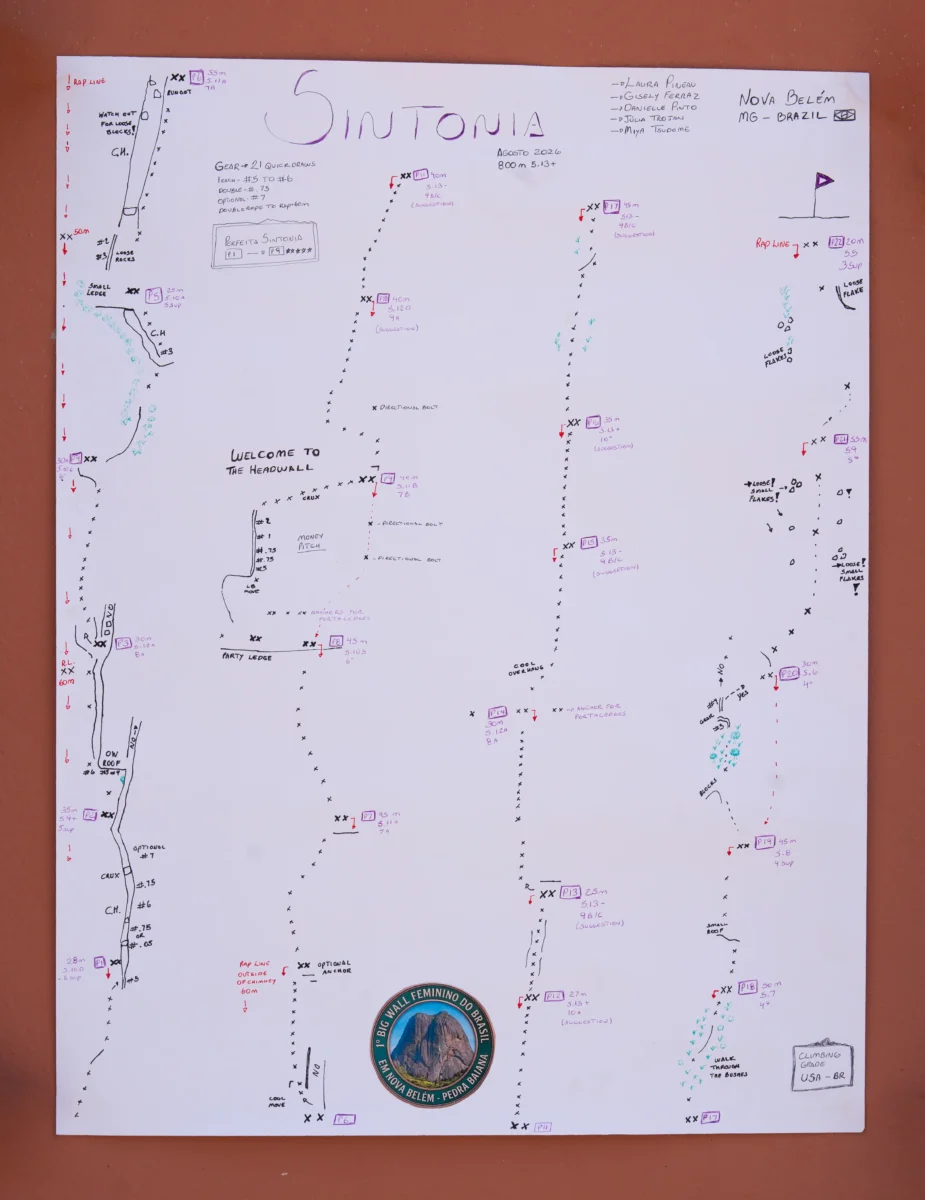 SINTONIA
AGOSTO 2024
800m 5.13+
→ LAURA PINEAU
→ GISELY FERRAZ
→ DANIELLE PINTO
→ JULIA TROJAN
NOVA BELÉM
MG - BRAZIL
GEAR → 21 QUICKDRAWS
DOUBLE - #.75
OPTIONAL - #7
DOUBLE ROPE TO RAP - 60m
BEFEITA SINTONIA
P1 → P9 *****
RAP LINE
XX P6 55m
5.11a
7a
RUNOUT
WATCH OUT
FOR LOOSE
BLOCKS!
C.H.
XX 50m
#2
#3
LOOSE
ROCKS
SMALL
LEDGE
XX P5 25m
5.10+
5sup
C.H
#3
XX
DOVO
R
XX P3 30m
R.L.
XX
60m
NO →
OW
ROOF
#6
XX
OPTIONAL
#7
CRUX
#.75
C.H.
#6
#.75
OR
#.65
28m
P1 XX
#5
XX P11 40m
5.13-
9b/c
(SUGGESTION)
XX P10 40m
(SUGGESTION)
X DIRECTIONAL BOLT
WELCOME TO
THE HEADWALL
XX P9 40m
5.11b
7b
CRUX
#2
#1
#.75
#.75
#.5
MONEY
PITCH
X - DIRECTIONAL BOLT
X - DIRECTIONAL BOLT
MOVE
XX XX ANCHORS FOR
PORTALEDGES
XX
XX P8 45m
PARTY LEDGE
XX P7 45m
5.11+
7a
RAP LINE
OUTSIDE
OF CHIMNEY
60m
XX OPTIONAL
ANCHOR
NO
COOL
MOVE
R
XX P6
1º BIG WALL FEMININO DO BRASIL
EM NOVA BELÉM - PEDRA BAIANA
XX P17 45m
5.13-
9b/c
(SUGGESTION)
XX P16 35m
5.13+
(SUGGESTION)
XX P15 35m
5.13-
9b/c
(SUGGESTION)
COOL
OVERHANG
X P14 XX
30m
5.12a
8a
XX → ANCHOR FOR
PORTALEDGES
R
XX P13 25m
5.13-
9b/c
(SUGGESTION)
XX P12 27m
5.13+
(SUGGESTION)
XX P11
RAP LINE XX P22 20m
5.5
3sup
LOOSE
FLAKE
LOOSE
FLAKES
XX P21 55m
5.9
5º
→ LOOSE!
SMALL
FLAKES!
→ LOOSE!
SMALL
FLAKES
!
XX P20 30m
5.6
4º
→ NO
YES
GEAR
#3
BLOCKS
XX P19 45m
5.8
4sup
SMALL
ROOF
XX P18 50m
5.7
4º
WALK
THROUGH
THE BUSHES
XX P17
CLIMBING
GRADE
USA - BR